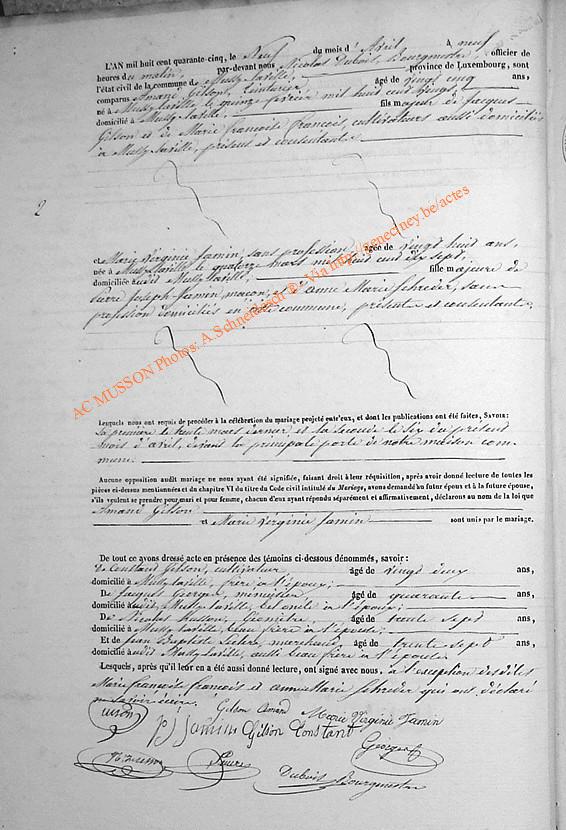 L'AN mil huit cent quarante-cinq, le Neuf du mois d'Avril à neuf
heures du matin, par-devant nous Nicolas Dubois, Bourgmestre officier de
l'état civil de la commune de Mussy-laville, province de Luxembourg, sont
comparus Amand Gilson, âgé de vingt cinq ans,
né à Mussy-laville, le quinze mil huit cent vingt,
domicilié à Mussy-laville, fils majeur de Jacques
Gilson et de Marie françoise françois, cultivateurs aussi domiciliés
à Mussy-laville, présens et consentants
2
et Marie Virginie Jamin, sans profession âgée de vingt huit ans,
née à Mussy-laville le quatorze mars mil huit cent dix sept,
domiciliée audit Mussy-laville fille majeure de
Pierre Joseph Jamin, maçon, et d'anne Marie Schréder, sans
profession domiciliés en cette commune, présents et consentants,
AC MUSSON Photos: A.Schneidesch ®: Via http://geneciney.be/actes
Lesquels nous ont requis de procéder à la célébration du mariage projeté entr'eux, et dont les publications ont été faites, SAVOIR:
La première le trente mars dernier et la seconde le Six du présent
mois d'avril, devant la principale porte de notre maison com-
mune.
Aucune opposition audit mariage ne nous ayant été signifiée, faisant droit à leur réquisition, après avoir donné lecture de toutes les
pièces ci-dessus mentionnées et du chapitre VI du titre du Code civil intitulé du Mariage, avons demandé au futur époux et à la future épouse,
s'ils veulent se prendre pour mari et pour femme, chacun d'eux ayant répondu séparément et affirmativement, déclarons au nom de la loi que
Amand Gilson
et Marie Virginie Jamin sont unis par le mariage.
De tout ce avons dressé acte en présence des témoins ci-dessous dénommés, savoir:
De Constant Gilson, cultivateur âgé de vingt deux ans,
domicilié à Mussy-laville, frère à l'époux;
De Jacques Georges, menuisier âgé de quarante ans,
domicilié audit Mussy-laville, bel oncle à l'époux;
De Nicolas Husson, âgé de trente sept ans,
domicilié à Mussy-laville, beau frère à l'épouse;
Et de Jean Baptiste marchand, âgé de trente sept ans,
domicilié audit Mussy-laville, aussi beau frère à l'épouse
Lesquels, après qu'il leur en a été aussi donné lecture, ont signé avec nous, à l'exception desdites
Marie françoise françois et anne Marie Schréder qui ont déclaré
ne savoir écrire.
Gilson Amand Marie Virginie Jamin
PJ Jamin Gilson Constant
Georges
Dubois Bourgmestre